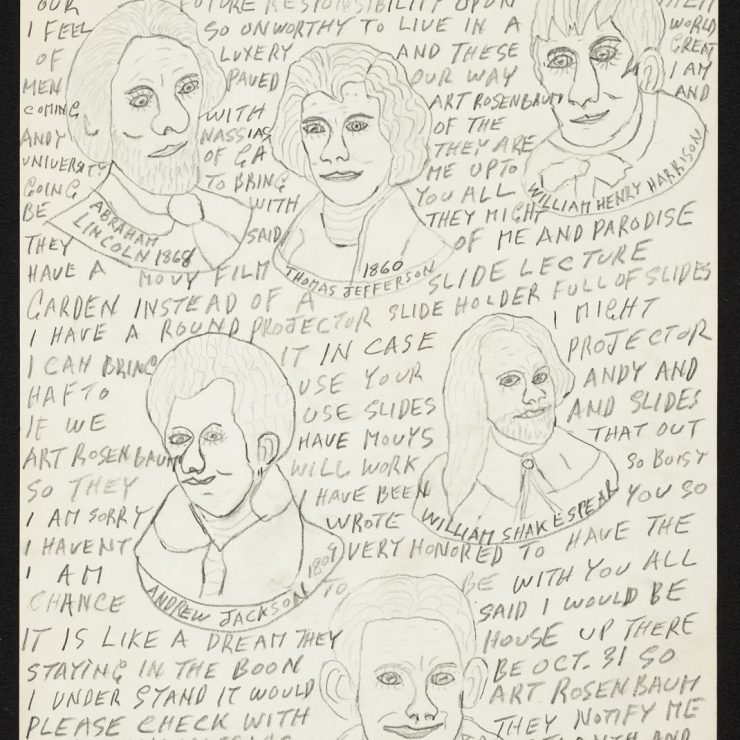 OUR FUTURE RESPONSIBILITY UPON THEM
I FEEL SO UNWORTHY TO LIVE IN A WORLD
OF LUXERY AND THESE GREAT
MEN PAVED OUR WAY I AM
COMING WITH ART ROSENBAUM AND
ANDY NASSIAS OF THE
UNIVERSITY OF GA THEY ARE
GOING TO BRING ME UP TO
BE WITH YOU ALL
THEY SAID THEY MIGHT
ABRAHAM LINCOLN 1868
THOMAS JEFFERSON 1860
WILLIAM HENRY HARRISON
HAVE A MOVY FILM OF ME AND PARODISE
GARDEN INSTEAD OF A SLIDE LECTURE
I HAVE A ROUND PROJECTOR SLIDE HOLDER FULL OF SLIDES
I CAN BRING IT IN CASE I MIGHT
HAFTO USE YOUR PROJECTOR
IF WE USE SLIDES ANDY AND
ART ROSENBAUM HAVE MOVYS AND SLIDES
SO THEY WILL WORK THAT OUT
I AM SORRY I HAVE BEEN SO BUISY
I HAVENT WROTE YOU SO
I AM VERY HONORED TO HAVE THE
CHANCE TO BE WITH YOU ALL
ANDREW JACKSON 1809
WILLIAM SHAKESPEAR
IT IS LIKE A DREAM THEY SAID I WOULD BE
STAYING IN THE BOON HOUSE UP THERE
I UNDER STAND IT WOULD BE OCT. 31 SO
PLEASE CHECK WITH ART ROSENBAUM
THEY NOTIFY ME
AND